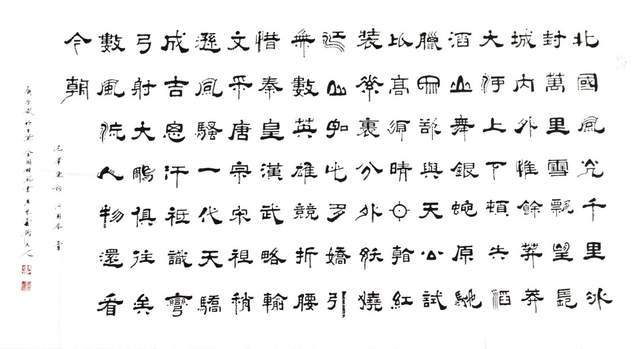 北國風光千里冰
封萬里雪飄望長
城內外惟餘莽莽
大河上下頓失滔
滔山舞銀蛇原馳
蠟象欲與天公試
比高須晴日看紅
裝素裹分外妖嬈
江山如此多嬌引
無數英雄競折腰
惜秦皇漢武略輸
文采唐宗宋祖稍
遜風騷一代天驕
成吉思汗祗識彎
弓射大鵰俱往矣
數風流人物還看
今朝
毛澤東詞 沁園春 雪